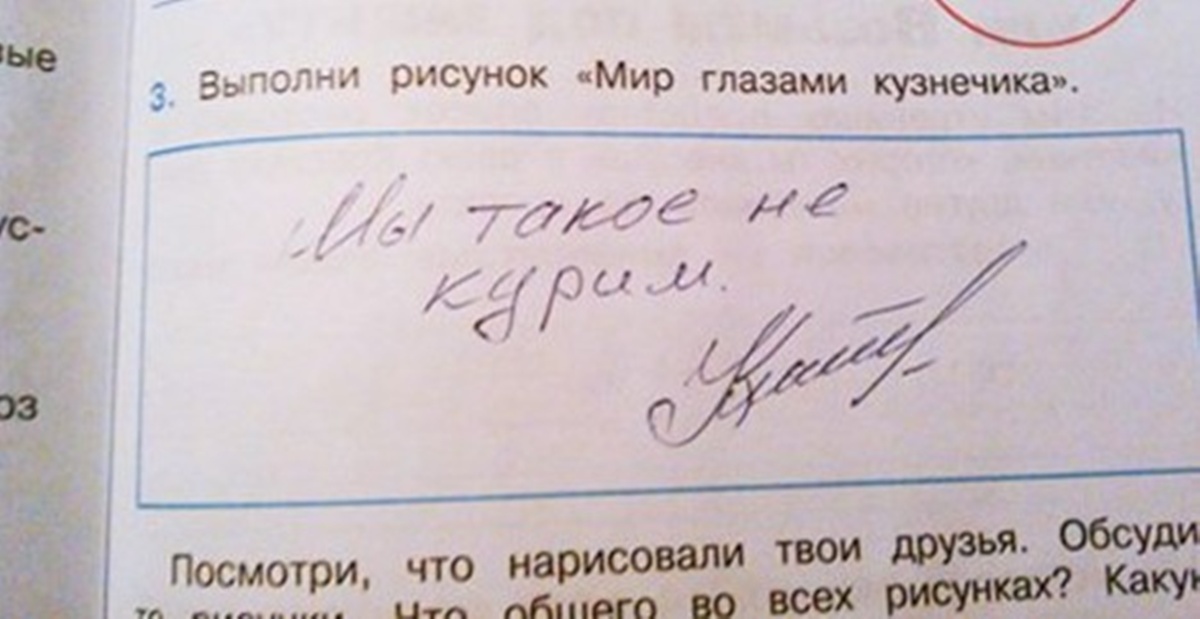 вые
3. Выполни рисунок «Мир глазами кузнечика».
Мы такое не
курим.
ус-
оз
Посмотри, что нарисовали твои друзья. Обсуди
то рисунки. Что общего во всех рисунках? Какую